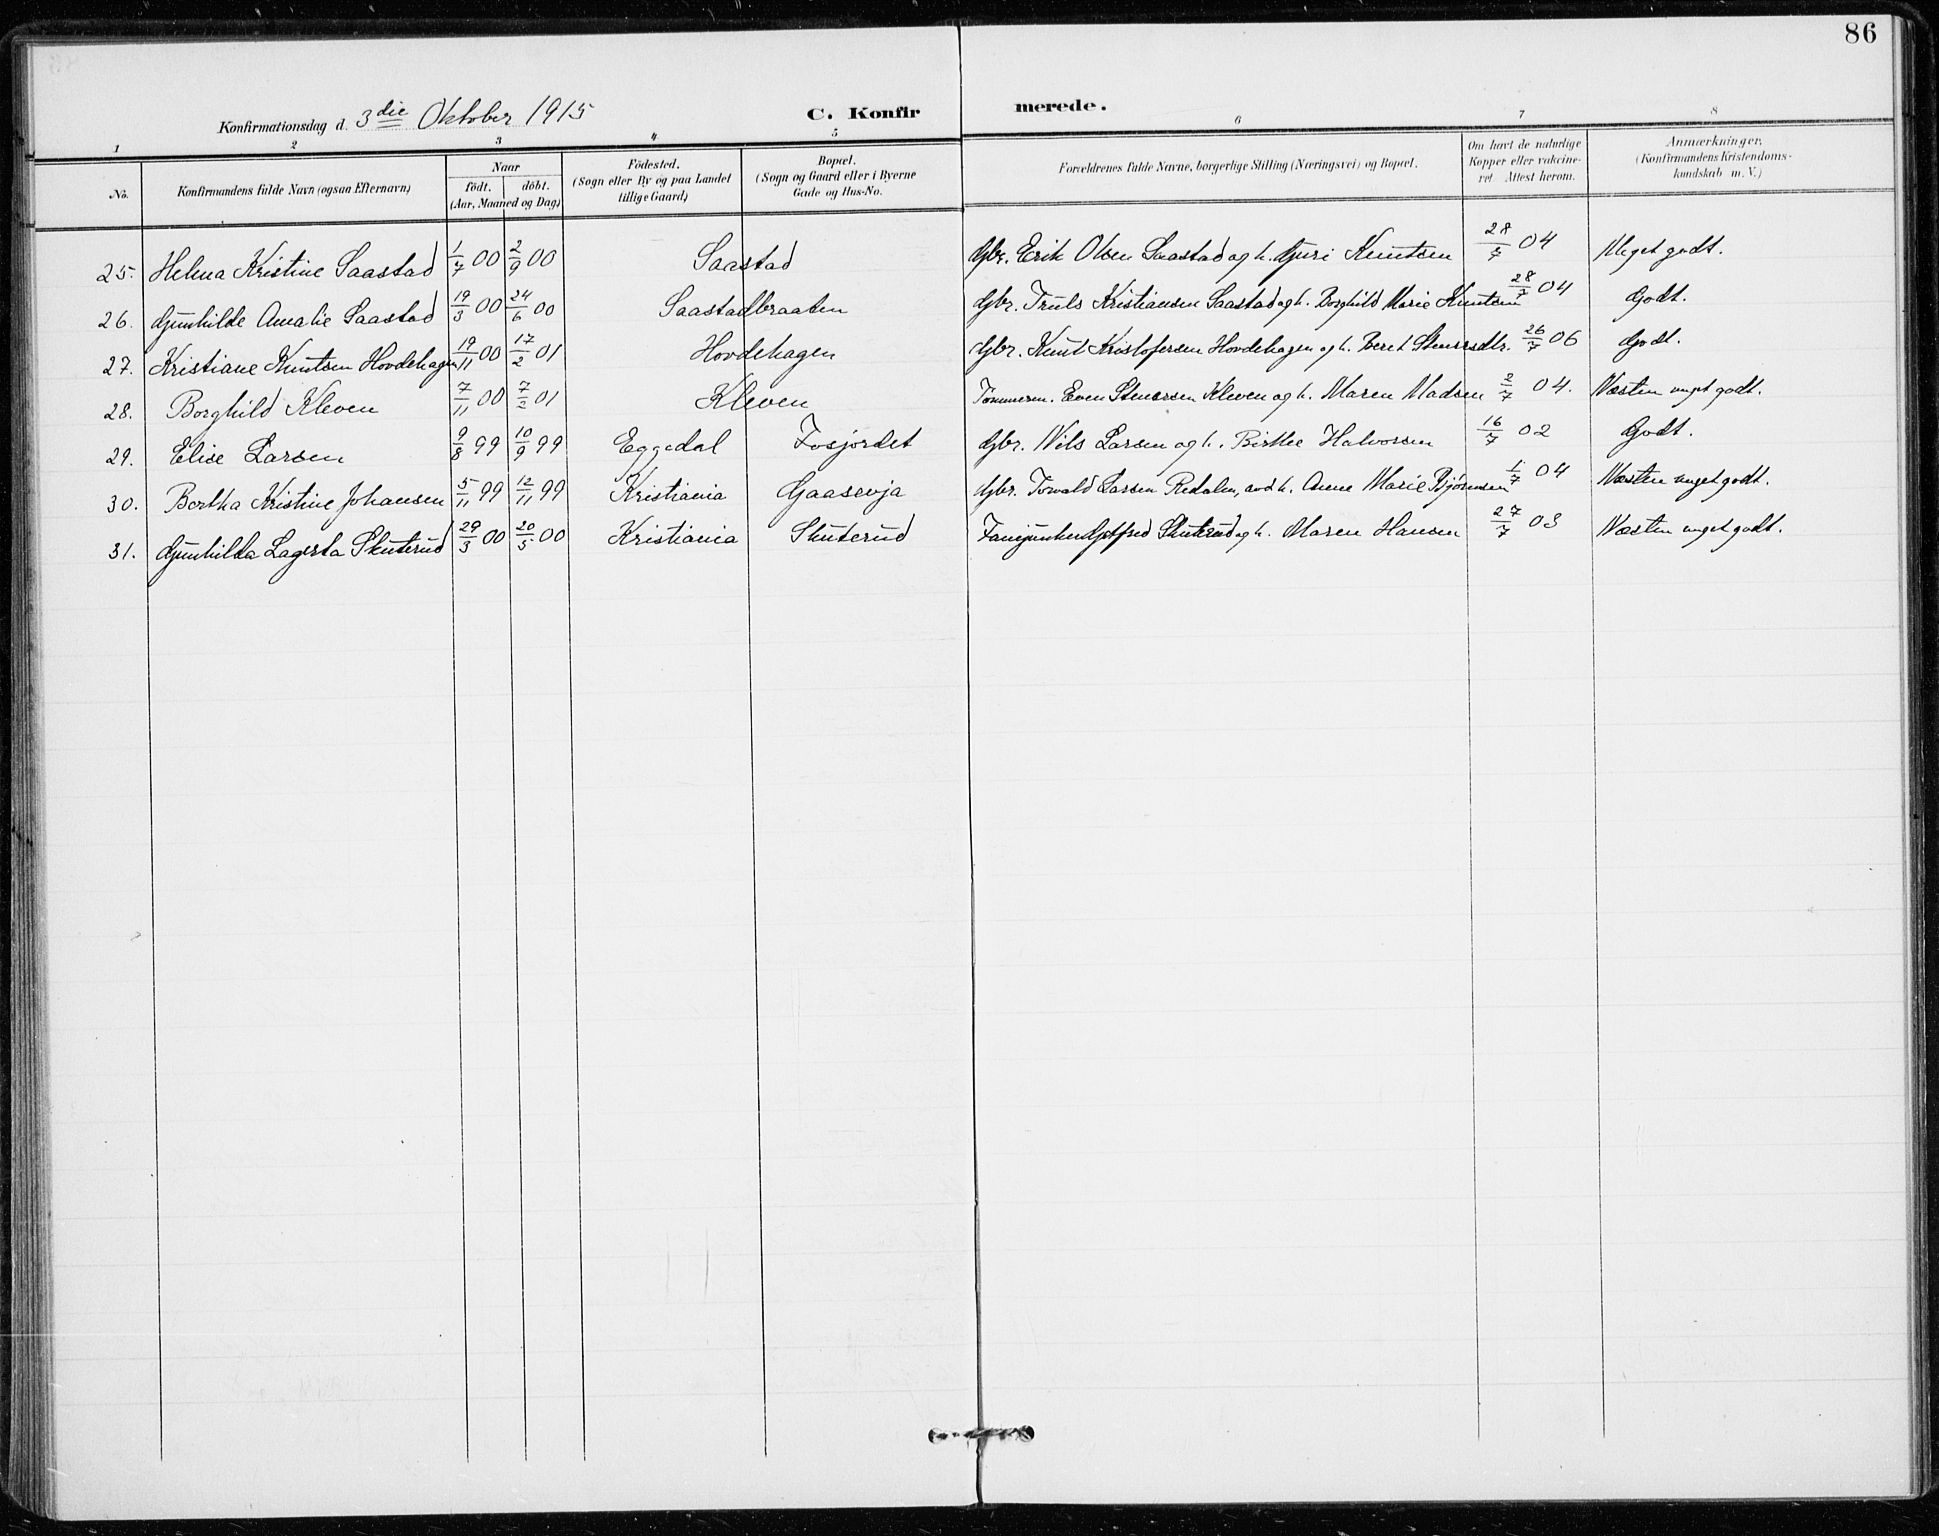 86
Konfirmationsdag d. 3die Oktober 1915 C. Konfirmerede.
1 2 3 4 5 6 7 8
No. Konfirmandens fulde Navn (ogsaa Efternavn) Naar födt. döbt. (Aar, Maaned og Dag) Födested. (Sogn eller By og paa Landet tillige Gaard) Bopæl. (Sogn og Gaard eller i Byerne Gade og Hus-No. Forældrenes fulde Navne, borgerlige Stilling (Næringsvei) og Bopæl. Om havt de naturlige Kopper eller vakcineret Attest herom. Anmærkninger. (Konfirmandens Kristendomskundskab m. V.)
25. Helma Kristine Saastad 1/7 00 2/9 00 Saastad Gbr. Erik Olsen Saastad og h. Guri Knutsen 28/7 04 Meget godt.
26. Gunhilde Amalie Saastad 19/3 00 24/6 00 Saastadbraaten Gbr. Truls Kristiansen Saastad og h. Borghild Marie Knutsen 28/7 04 Godt.
27. Kristiane Knutsen Hovdehagen 19/11 00 17/2 01 Hovdehagen Gbr. Knut Kristofersen Hovdehagen og h. Beret Stenersdtr. 26/7 06 Godt.
28. Borghild Kleven 7/11 00 7/2 01 Kleven Tømmerm. Even Stenersen Kleven og h. Maren Madsen 2/7 04. Næsten meget godt.
29. Elise Larsen 9/8 99 10/9 99 Eggedal Fosjordet Gbr. Nils Larsen og h. Birthe Halvorsen 16/7 02 Godt.
30. Bertha Kristine Johansen 5/11 99 12/11 99 Kristiania Gaasevja Gbr. Torvald Larsen Redalen, avd h. Anne Marie Bjørnsen 1/7 04 Næsten meget godt.
31. Gunhilda Lagerta Skuterud 29/3 00 20/5 00 Kristiania Skuterud Fanejunker Skuterud og h. Maren Hansen 27/7 03 Næsten meget godt.